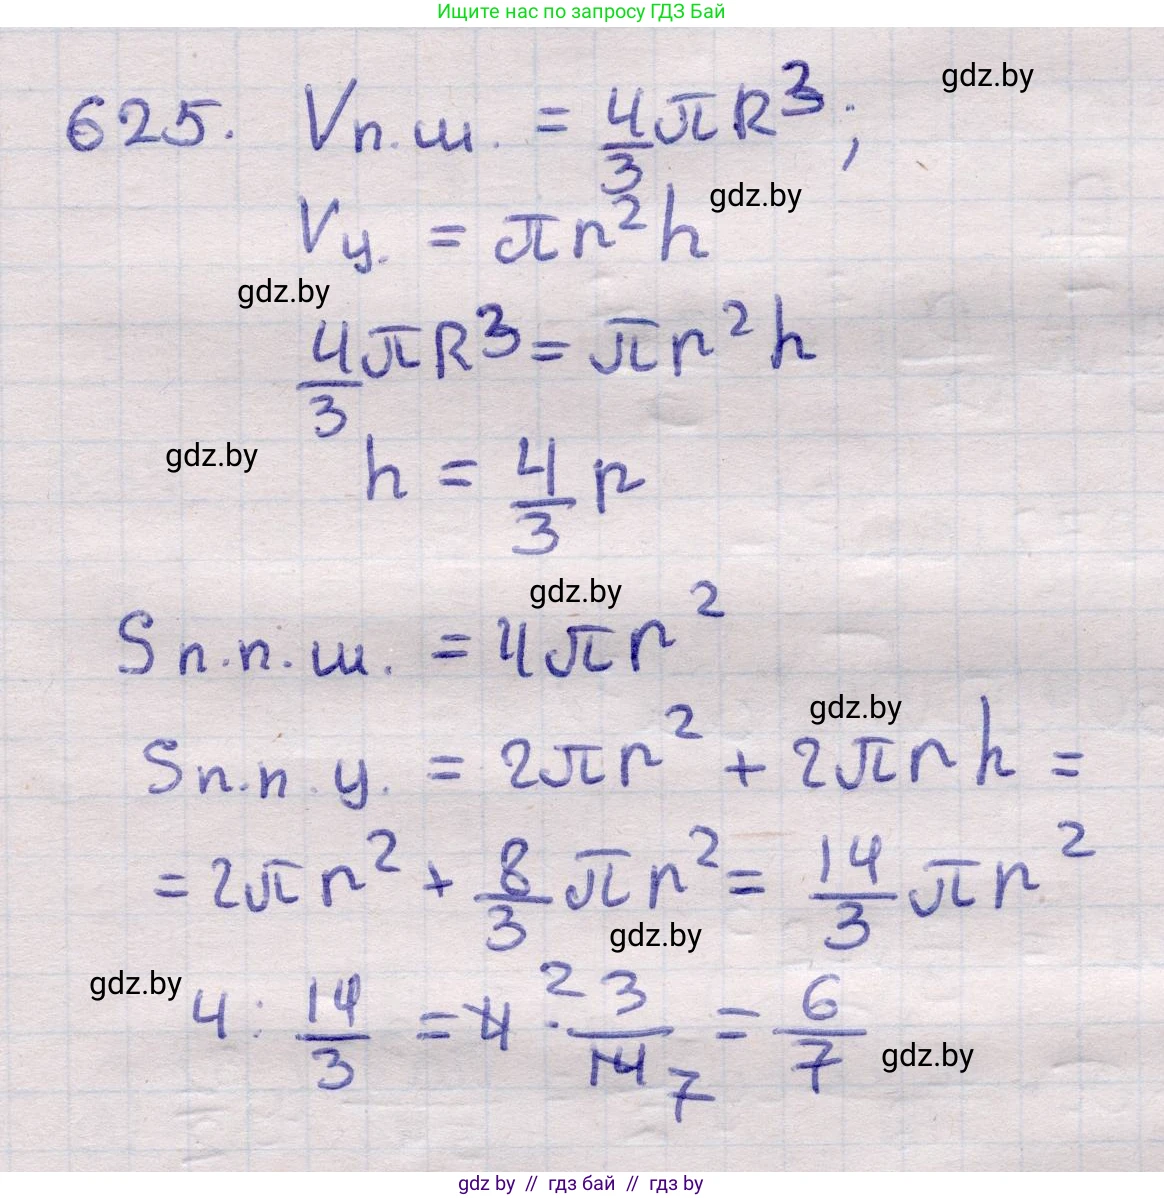 Ищите нас по запросу ГДЗ Бай
gdz.by
625. Vп.ш. = 4/3 πR³;
gdz.by
Vц. = πr²h
gdz.by
4/3 πR³ = πr²h
gdz.by
h = 4/3 r
gdz.by
Sп.п.ш. = 4πr²
gdz.by
Sп.п.ц. = 2πr² + 2πrh =
= 2πr² + 8/3 πr² = 14/3 πr²
gdz.by
gdz.by
4 : 14/3 = 4 ² · 3/14 7 = 6/7
gdz.by
gdz by // gdz бай // gdz by